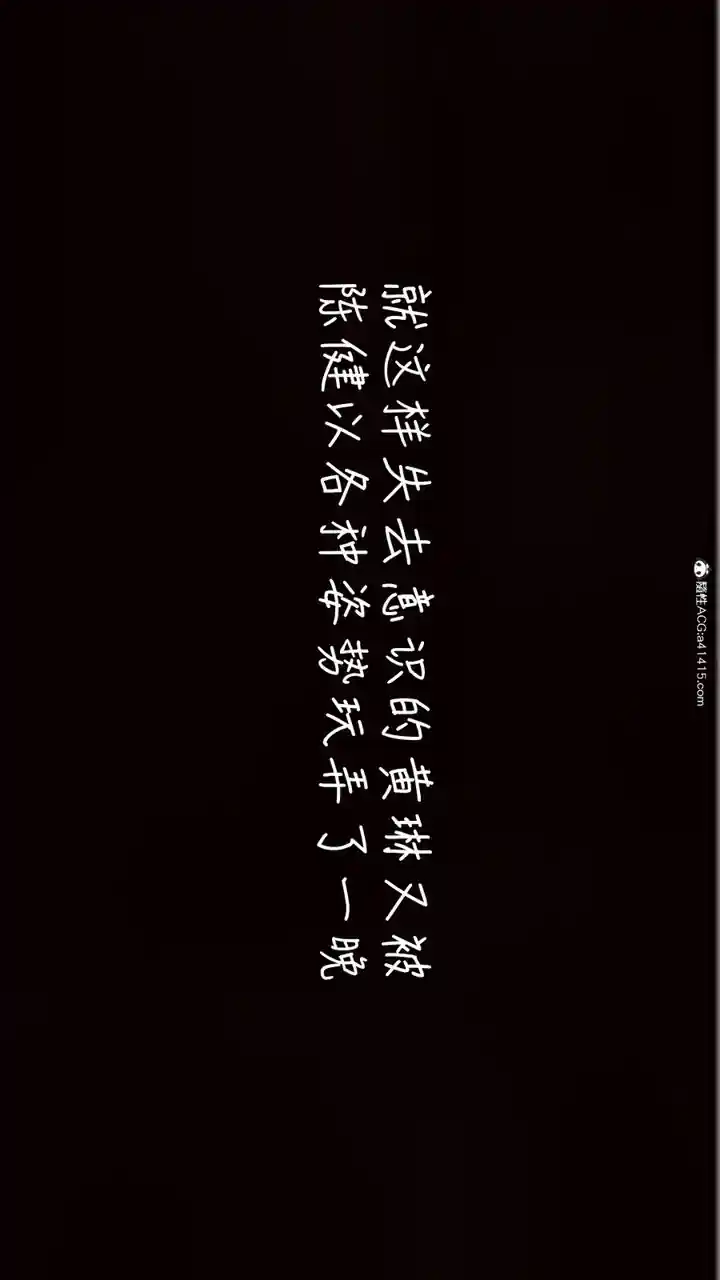 就这样失去意识的黄琳又被
陈健以各种姿势玩弄了一晚
隨性ACG:a41415.com